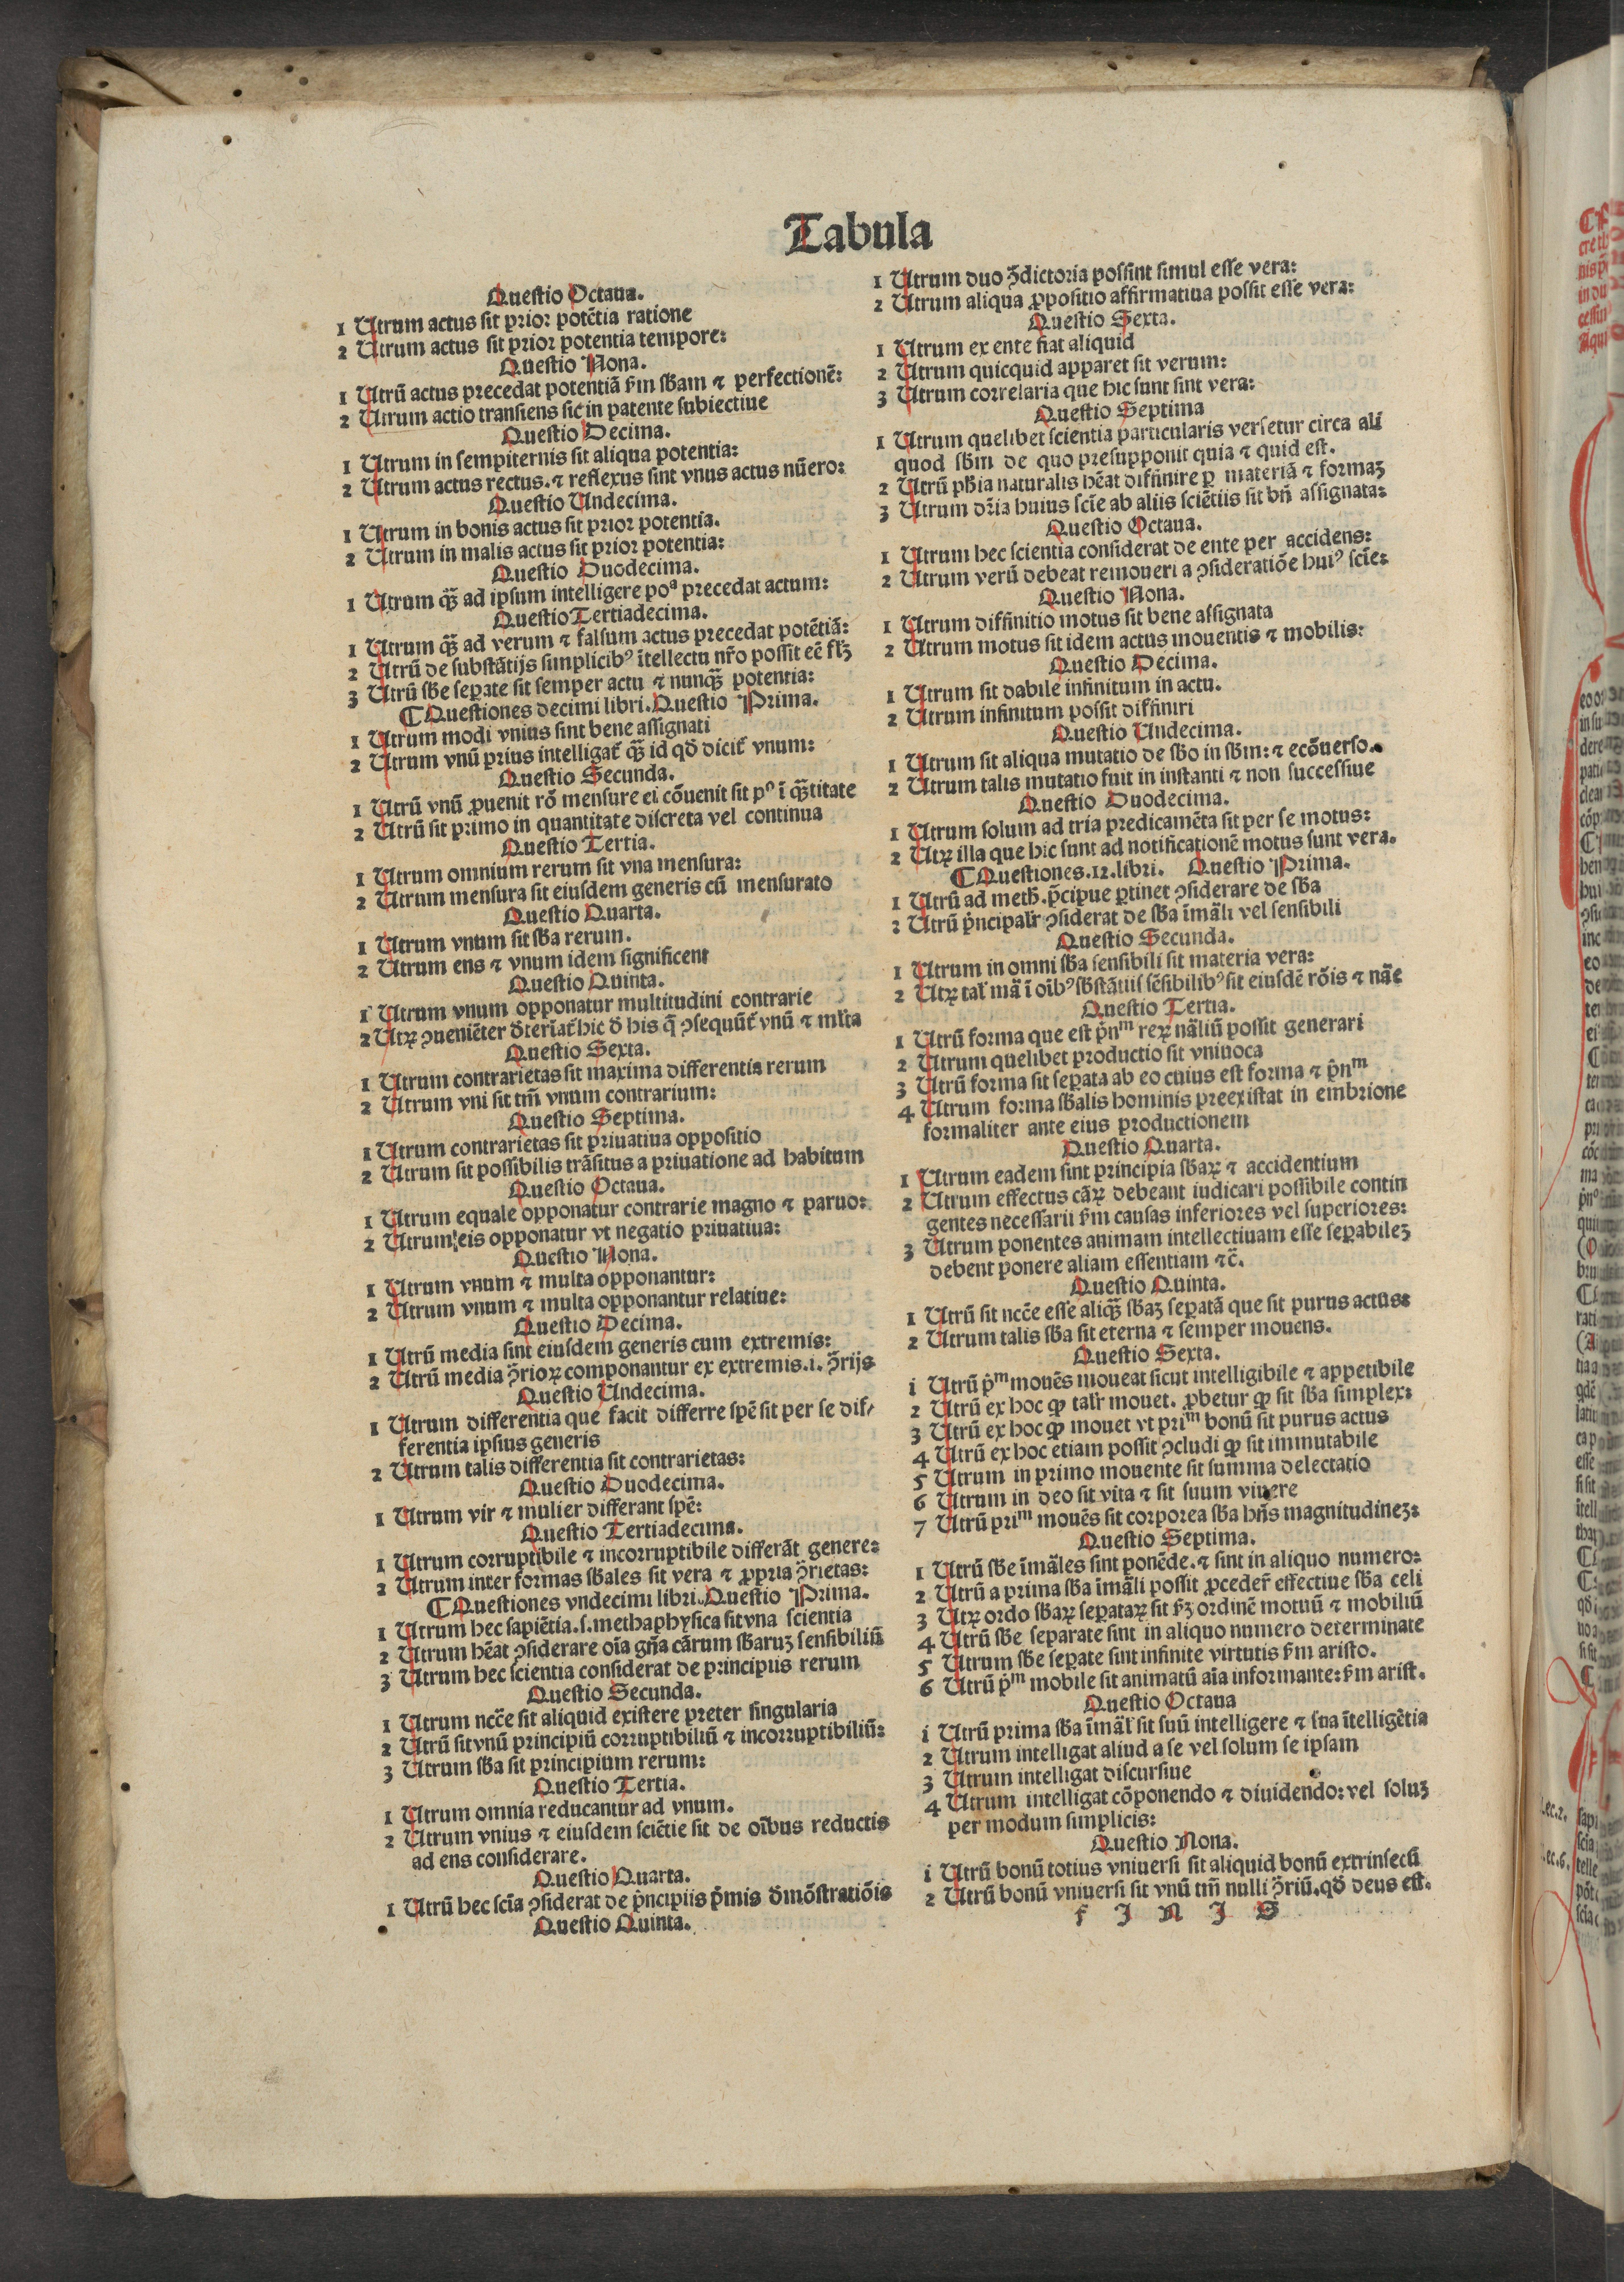 Tabula
Questio Octaua.
1 Utrum actus sit prior potẽtia ratione
2 Utrum actus sit prior potentia tempore:
Questio Nona.
1 Utrũ actus precedat potentiã ẜm ſƀam ⁊ perfectionẽ:
2 Utrum actio transiens sit in patente subiectiue
Questio Decima.
1 Utrum in sempiternis sit aliqua potentia:
2 Utrum actus rectus.⁊ reflexus sint vnus actus nũero:
Questio Undecima.
1 Utrum in bonis actus sit prior potentia.
2 Utrum in malis actus sit prior potentia:
Questio Duodecima.
1 Utrum qꝫ̃ ad ipsum intelligere poᵃ precedat actum:
Questio Tertiadecima.
1 Utrum qꝫ̃ ad verum ⁊ falsum actus precedat potẽtiã:
2 Utrũ de substãtijs simplicibꝰ ĩtellectu nr̃o possit eẽ fl̃ꝫ
3 Utrũ sƀe seꝑate sit semper actu ⁊ nunqꝫ̃ potentia:
¶Questiones decimi libri. Questio Prima.
1 Utrum modi vnius sint bene assignati
2 Utrum vnũ prius intelligat̃ qꝫ̃ id qđ dicit̃ vnum:
Questio Secunda.
1 Utrũ vnũ ꝓuenit rõ mensure ei cõuenit sit pꝰ ĩ qꝫ̃titate
2 Utrũ sit primo in quantitate discreta vel continua
Questio Tertia.
1 Utrum omnium rerum sit vna mensura:
2 Utrum mensura sit eiusdem generis cũ mensurato
Questio Quarta.
1 Utrum vnum sit sƀa rerum.
2 Utrum ens ⁊ vnum idem significent
Questio Quinta.
1 Utrum vnum opponatur multitudini contrarie
2 Utꝝ ꝯueniẽter đterĩat̃ hic đ his q̃ ꝯsequũt̃ vnũ ⁊ ml̃ta
Questio Sexta.
1 Utrum contrarietas sit maxima differentia rerum
2 Utrum vni sit tm̃ vnum contrarium:
Questio Septima.
1 Utrum contrarietas sit priuatiua oppositio
2 Utrum sit possibilis trãsitus a priuatione ad habitum
Questio Octaua.
1 Utrum equale opponatur contrarie magno ⁊ paruo:
2 Utrum eis opponatur vt negatio priuatiua:
Questio Nona.
1 Utrum vnum ⁊ multa opponantur:
2 Utrum vnum ⁊ multa opponantur relatiue:
Questio Decima.
1 Utrũ media sint eiusdem generis cum extremis:
2 Utrũ media ꝯ̃rioꝝ componantur ex extremis.i. ꝯ̃rijs
Questio Undecima.
1 Utrum differentia que facit differre spẽ sit per se dif/
ferentia ipsius generis
2 Utrum talis differentia sit contrarietas:
Questio Duodecima.
1 Utrum vir ⁊ mulier differant spẽ:
Questio Tertiadecima.
1 Utrum corruptibile ⁊ incorruptibile differãt genere:
2 Utrum inter formas sƀales sit vera ⁊ ꝓpria ꝯ̃rietas:
¶Questiones vndecimi libri. Questio Prima.
1 Utrum hec sapiẽtia.s. methaphysica sit vna scientia
2 Utrum hẽat ꝯsiderare oĩa gñã cãrum sƀaruꝫ sensibiliũ
3 Utrum hec scientia considerat de principiis rerum
Questio Secunda.
1 Utrum ncc̃e sit aliquid existere preter singularia
2 Utrũ sit vnũ principiũ corruptibiliũ ⁊ incorruptibiliũ:
3 Utrum sƀa sit principium rerum:
Questio Tertia.
1 Utrum omnia reducantur ad vnum.
2 Utrum vnius ⁊ eiusdem sciẽtie sit de oĩbus reductis
ad ens considerare.
Questio Quarta.
1 Utrũ hec scĩa ꝯsiderat de p̃ncipiis p̃mis đmõstratiõis
Questio Quinta.
1 Utrum duo ꝯ̃dictoria possint simul esse vera:
2 Utrum aliqua ꝓpositio affirmatiua possit esse vera:
Questio Sexta.
1 Utrum ex ente fiat aliquid
2 Utrum quicquid apparet sit verum:
3 Utrum correlaria que hic sunt sint vera:
Questio Septima
1 Utrum quelibet scientia particularis versetur circa ali
quod sƀm de quo presupponit quia ⁊ quid est.
2 Utrũ ph̃ia naturalis hẽat diffinire ꝑ materiã ⁊ formaꝫ
3 Utrum dr̃ia huius scĩe ab aliis sciẽtiis sit bñ assignata:
Questio Octaua.
1 Utrum hec scientia considerat de ente per accidens:
2 Utrum verũ debeat remoueri a ꝯsideratiõe huiꝰ scĩe:
Questio Nona.
1 Utrum diffinitio motus sit bene assignata
2 Utrum motus sit idem actus mouentis ⁊ mobilis:
Questio Decima.
1 Utrum sit dabile infinitum in actu.
2 Utrum infinitum possit diffiniri
Questio Undecima.
1 Utrum sit aliqua mutatio de sƀo in sƀm: ⁊ ecõuerso.
2 Utrum talis mutatio fuit in instanti ⁊ non successiue
Questio Duodecima.
1 Utrum solum ad tria predicamẽta sit per se motus:
2 Utꝝ illa que hic sunt ad notificationẽ motus sunt vera.
¶Questiones.12.libri. Questio Prima.
1 Utrũ ad meth̃. p̃cipue ꝑtinet ꝯsiderare de sƀa
2 Utrũ p̃ncipalr̃ ꝯsiderat de sƀa ĩmãli vel sensibili
Questio Secunda.
1 Utrum in omni sƀa sensibili sit materia vera:
2 Utꝝ tal̃ mã ĩ oĩbꝰ sƀstãtiis sẽsibilibꝰ sit eiusdẽ rõis ⁊ nãe
Questio Tertia.
1 Utrũ forma que est p̃nᵐ reꝝ nãliũ possit generari
2 Utrum quelibet productio sit vniuoca
3 Utrũ forma sit seꝑata ab eo cuius est forma ⁊ p̃nᵐ
4 Utrum forma sƀalis hominis preexistat in embrione
formaliter ante eius productionem
Questio Quarta.
1 Utrum eadem sint principia sƀaꝝ ⁊ accidentium
2 Utrum effectus cãꝝ debeant iudicari possibile contin
gentes necessarii ẜm causas inferiores vel superiores:
3 Utrum ponentes animam intellectiuam esse seꝑabileꝫ
debent ponere aliam essentiam ⁊c̃.
Questio Quinta.
1 Utrũ sit ncc̃e esse aliqꝫ̃ sƀaꝫ seꝑatã que sit purus actus:
2 Utrum talis sƀa sit eterna ⁊ semper mouens.
Questio Sexta.
i Utrũ p̃ᵐ mouẽs moueat sicut intelligibile ⁊ appetibile
2 Utrũ ex hoc ꝙ talr̃ mouet. ꝓbetur ꝙ sit sƀa simplex:
3 Utrũ ex hoc ꝙ mouet vt priᵐ bonũ sit purus actus
4 Utrũ ex hoc etiam possit ꝯcludi ꝙ sit immutabile
5 Utrum in primo mouente sit summa delectatio
6 Utrum in deo sit vita ⁊ sit suum viuere
7 Utrũ priᵐ mouẽs sit corporea sƀa hñs magnitudineꝫ:
Questio Septima.
1 Utrũ sƀe ĩmãles sint ponẽde.⁊ sint in aliquo numero:
2 Utrũ a prima sƀa ĩmãli possit ꝓceder̃ effectiue sƀa celi
3 Utꝝ ordo sƀaꝝ seꝑataꝝ sit ẜꝫ ordinẽ motuũ ⁊ mobiliũ
4 Utrũ sƀe separate sint in aliquo numero determinate
5 Utrum sƀe seꝑate sint infinite virtutis ẜm aristo.
6 Utrũ p̃ᵐ mobile sit animatũ aĩa informante: ẜm arist.
Questio Octaua
i Utrũ prima sƀa ĩmãl̃ sit suũ intelligere ⁊ sua ĩtelligẽtia
2 Utrum intelligat aliud a se vel solum se ipsam
3 Utrum intelligat discursiue
4 Utrum intelligat cõponendo ⁊ diuidendo: vel soluꝫ
per modum simplicis:
Questio Nona.
i Utrũ bonũ totius vniuersi sit aliquid bonũ extrinsecũ
2 Utrũ bonũ vniuersi sit vnũ tm̃ nulli ꝯ̃riũ.qđ deus est.
F I N I S